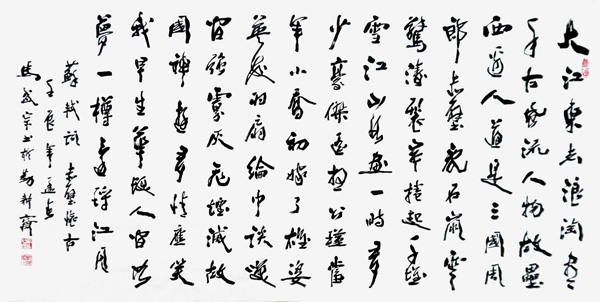 大江東去浪淘盡
千古風流人物故壘
西邊人道是三國周
郎赤壁亂石崩雲
驚濤裂岸捲起千堆
雪江山如畫一時多
少豪傑遥想公瑾當
年小喬初嫁了雄姿
英發羽扇綸巾談笑
間強虜灰飛煙滅故
國神遊多情應笑
我早生華髮人間如
夢一樽還酹江月
蘇軾詞赤壁懷古
壬辰年
書於